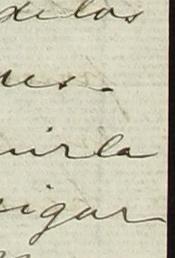 de los
ues.
uirla
igar